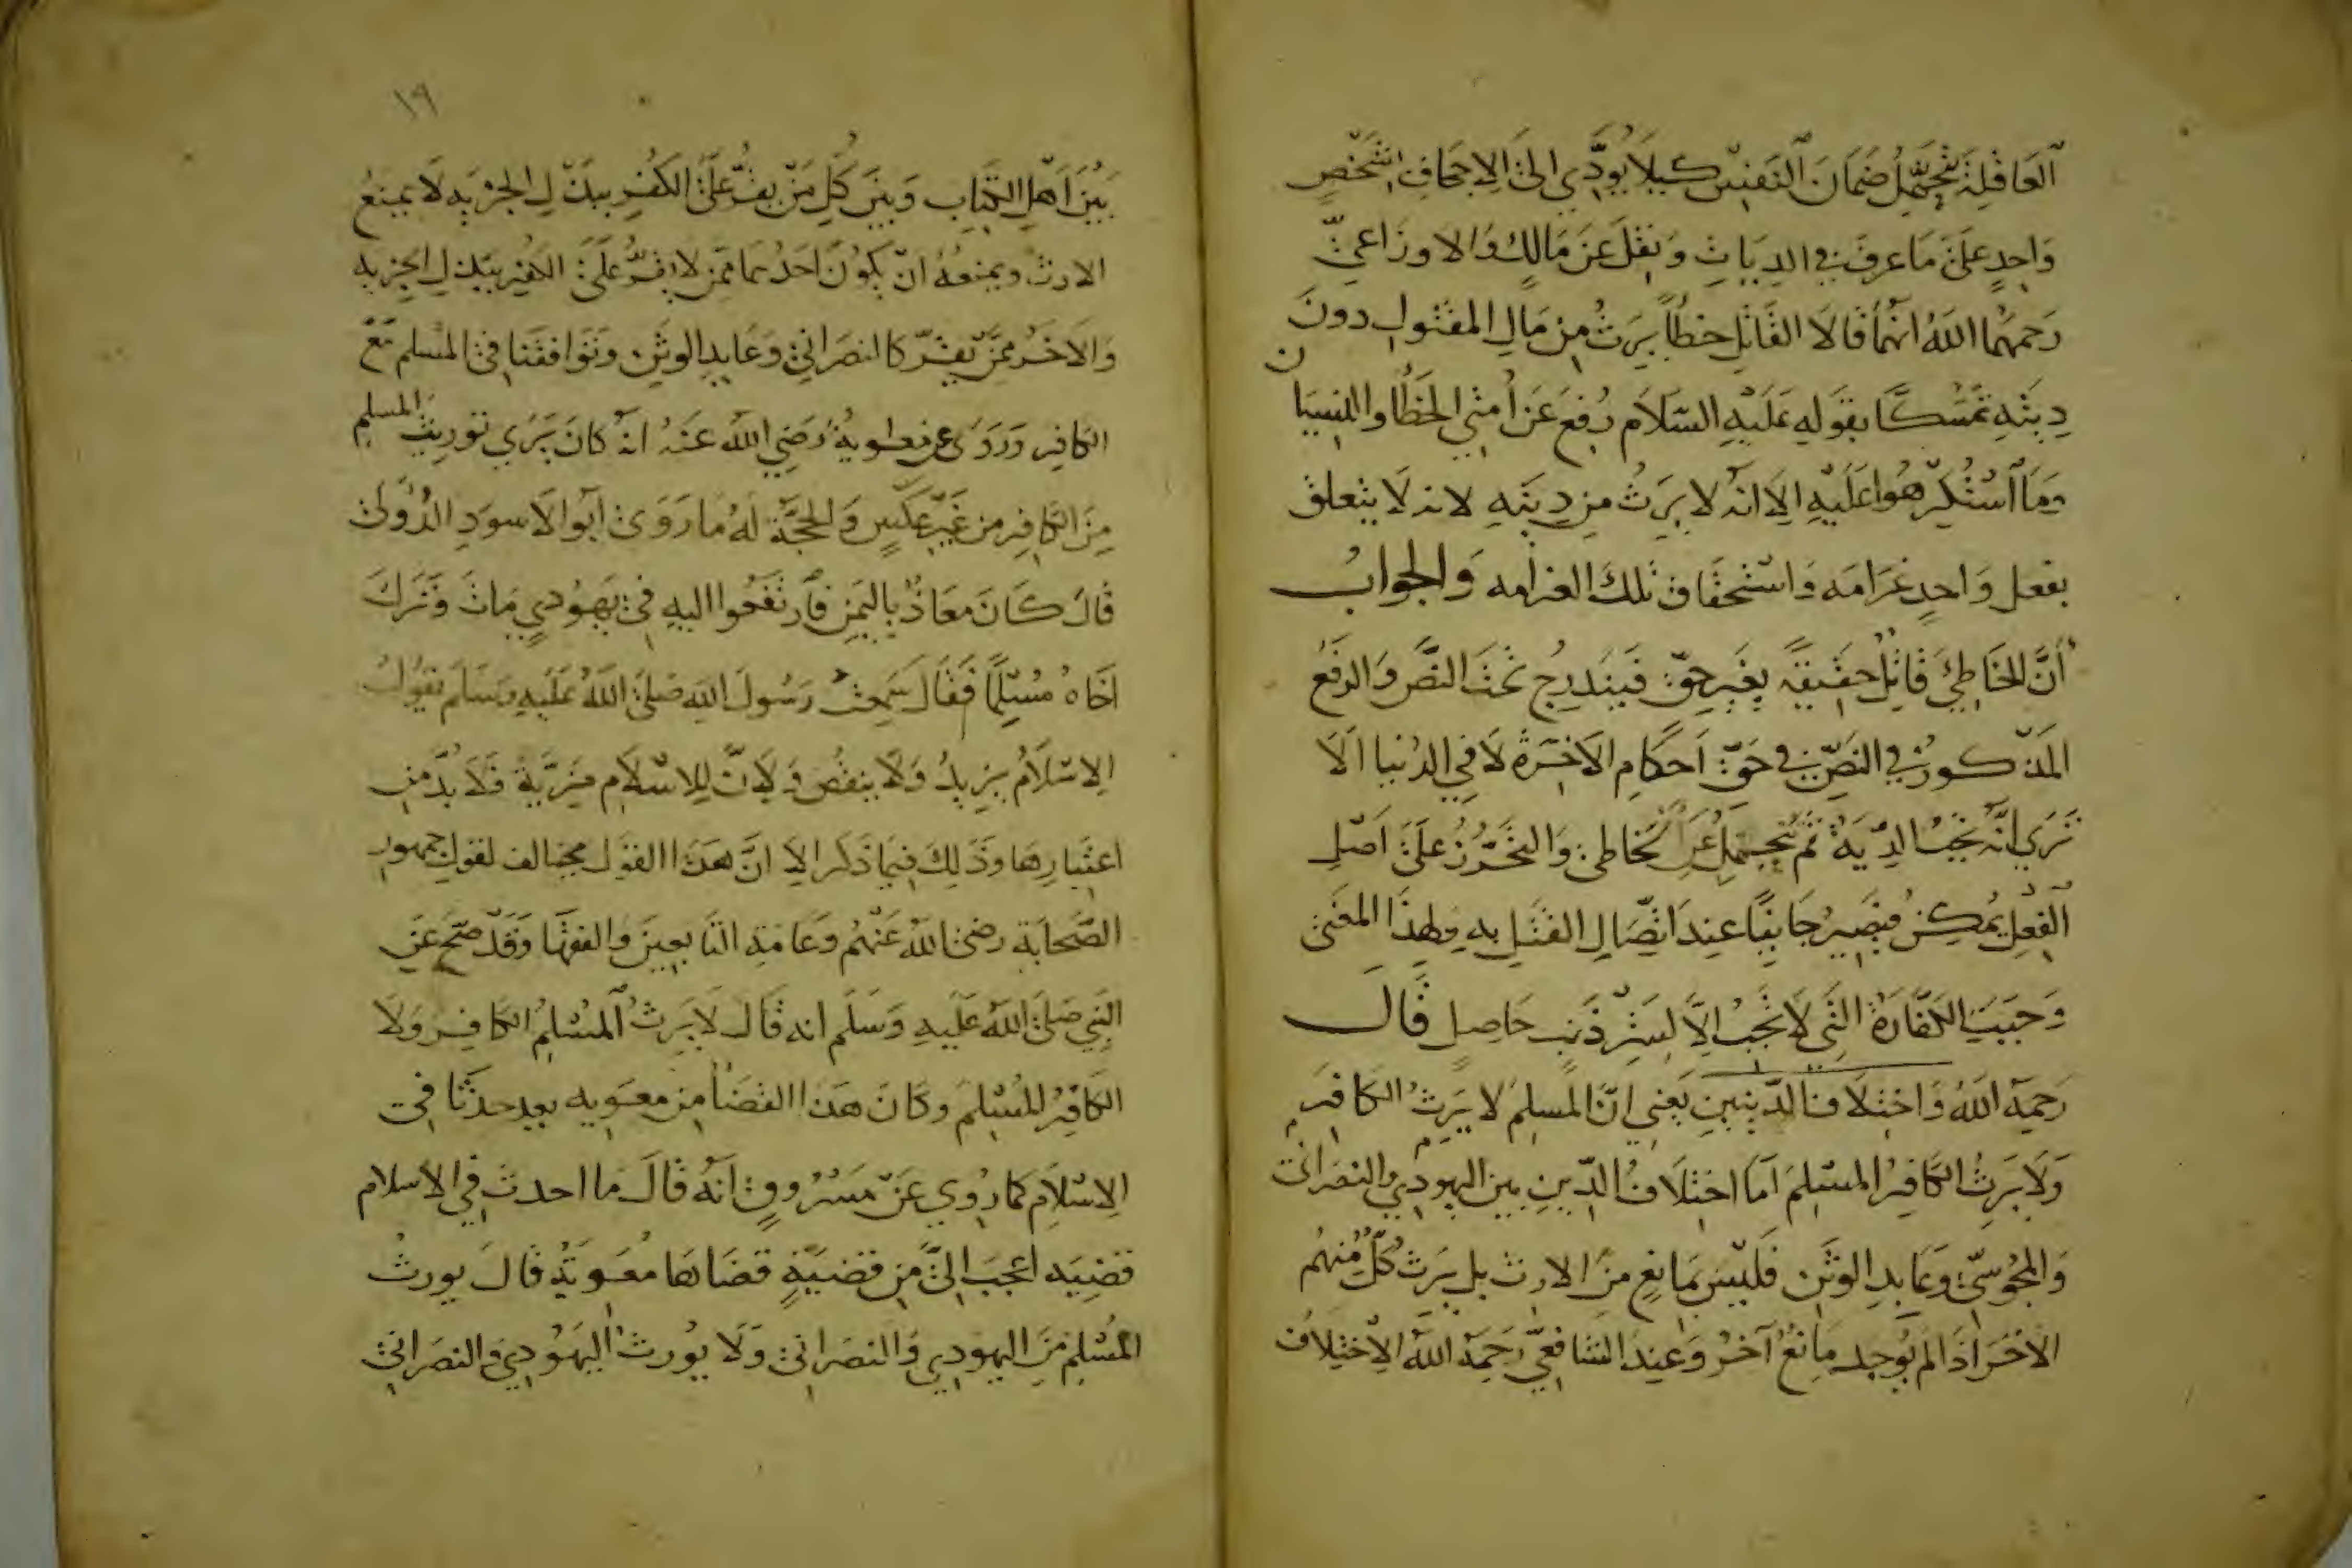 العَاقِلة تتحمّل ضَمَانَ النفس كيلا يُؤدّي الى الاجحاف بشخصٍ
وَاحِدٍ عَلىَ مَا عرفَ في الدِيَاتِ وَنقلَ عَن مَالكٍ وَالاوزَاعيّ
رَحمهُما اللهُ انهما قالا القَاتل خطأً يَرثُ من مَالِ المقتولِ دونَ
دِيتهِ تمسّكًا بقولهِ عَليْهِ السّلام رُفعَ عَن أمتي الخطأ والنسيان
وَمَا اسْتُكرِهُوا عَليْهِ الا انه لا يرثُ من دِيتهِ لانه لا يتعلق
بفعل وَاحدٍ غَرَامَه وَاستحقاق تلكَ الغرامه وَالجوابُ
أنَّ الخَاطِئَ قَاتلٌ حقيقةً بغيرِ حقٍ فيَندرِجُ تحتَ النصِّ وَالرفعُ
المَذكورُ في النصِّ في حَقِّ احكامِ الآخرةِ لَا فِي الدُنيا الَا
تَرَى انّهُ تجبُ الدِّيَةُ ثم تُتحمل عَن الخاطئ وَالتحرُّزُ عَلىَ اَصْلِ
الفِعْلِ يُمكِنُ فيصيرُ جَانيًا عندَ اتّصَالِ القَتلِ بهِ ولهذا المعْنى
وَجبَتِ الكفّارةُ التي لَا تجبُ الّا لسَترِ ذَنبٍ حَاصلٍ قَالَ
رَحمهُ اللهُ وَاختلَافُ الدّينينِ يَعني انَّ المسلِمَ لا يَرِثُ الكافرَ
وَلَا يَرِثُ الكَافِرُ المسْلِمَ اَمّا اختلَافُ الدّينِ بين اليهودِي والنصرَانى
وَالمجُوسيّ وعَابدِ الوثَنِ فليسَ بمَانعٍ منَ الارث بل يَرثُ كلٌّ منهُم
الآخَر اذَا لم يُوجد مَانعٌ آخرُ وَعندَ الشافعيّ رَحمهُ اللهُ الاختِلافُ
١٩
بَيْنَ اَهْلِ الكتَابِ وَبينَ كُلّ مَنْ يقرُّ عَلىَ الكُفرِ ببذْلِ الجزيَه لَا يمنعُ
الارثَ ويمنعُهُ انْ يَكونَ احَدُهما ممّن لا يقرُّ عَلىَ الكفر ببذلِ الجزيه
وَالآخَرُ ممّن يقرّ كالنصرَاني وَعَابدِ الوثنِ وتَوَافقنا في المسلم مَعَ
الكافِر وَرَوَى عن معٰوية رَضيَ اللهُ عنهُ انه كانَ يَرَى توريث المسلم
مِنَ الكَافِر من غَيرِ عَكسٍ وَالحجَّةُ لهُ مَا رَوَى ابو الاسوَدِ الدُّؤلى
قَالَ كَانَ مَعَاذٌ باليَمنِ فارتفعُوا اليهِ في يَهُودي مَاتَ وتَرَكَ
اخَاهُ مُسْلمًا فَقَالَ سَمِعتُ رَسُولَ اللهِ صَلىَ اللهُ عَليهِ وَسَلمَ يقولُ
الاسْلَامُ يزِيدُ وَلا ينقُصُ وَلانَّ للاسْلَامِ مزيّةً فلَا بُدَّ من
اعتبارِهَا وذَلِكَ فيمَا ذكر الا انَّ هَذا القوْل مخالف لقولِ جمهور
الصّحابَةِ رضى الله عَنْهم وعَامةِ التابعِينَ والفقهَا وَقدْ صَحَّ عَنِ
النّبي صَلى اللهُ عَليهِ وَسَلم انه قَالَ لَا يَرثُ المسْلِمُ الكافِرَ وَلَا
الكافِرُ المسْلِمَ وكانَ هَذا القضَاُ من معوية بعد حدثا في
الاسْلَامِ كمَا رُوِيَ عَنْ مَسْرُوقٍ انّهُ قَالَ مَا احدثَ فِي الاسلام
قضِيَه اعجَبَ اليَّ منِ قضيّةٍ قضَاهَا مُعَويَةُ قَالَ يورثُ
المُسْلِمَ مِنَ اليهودِي وَالنصرَانى وَلا يُورث اليَهُودِي والنصرَانى